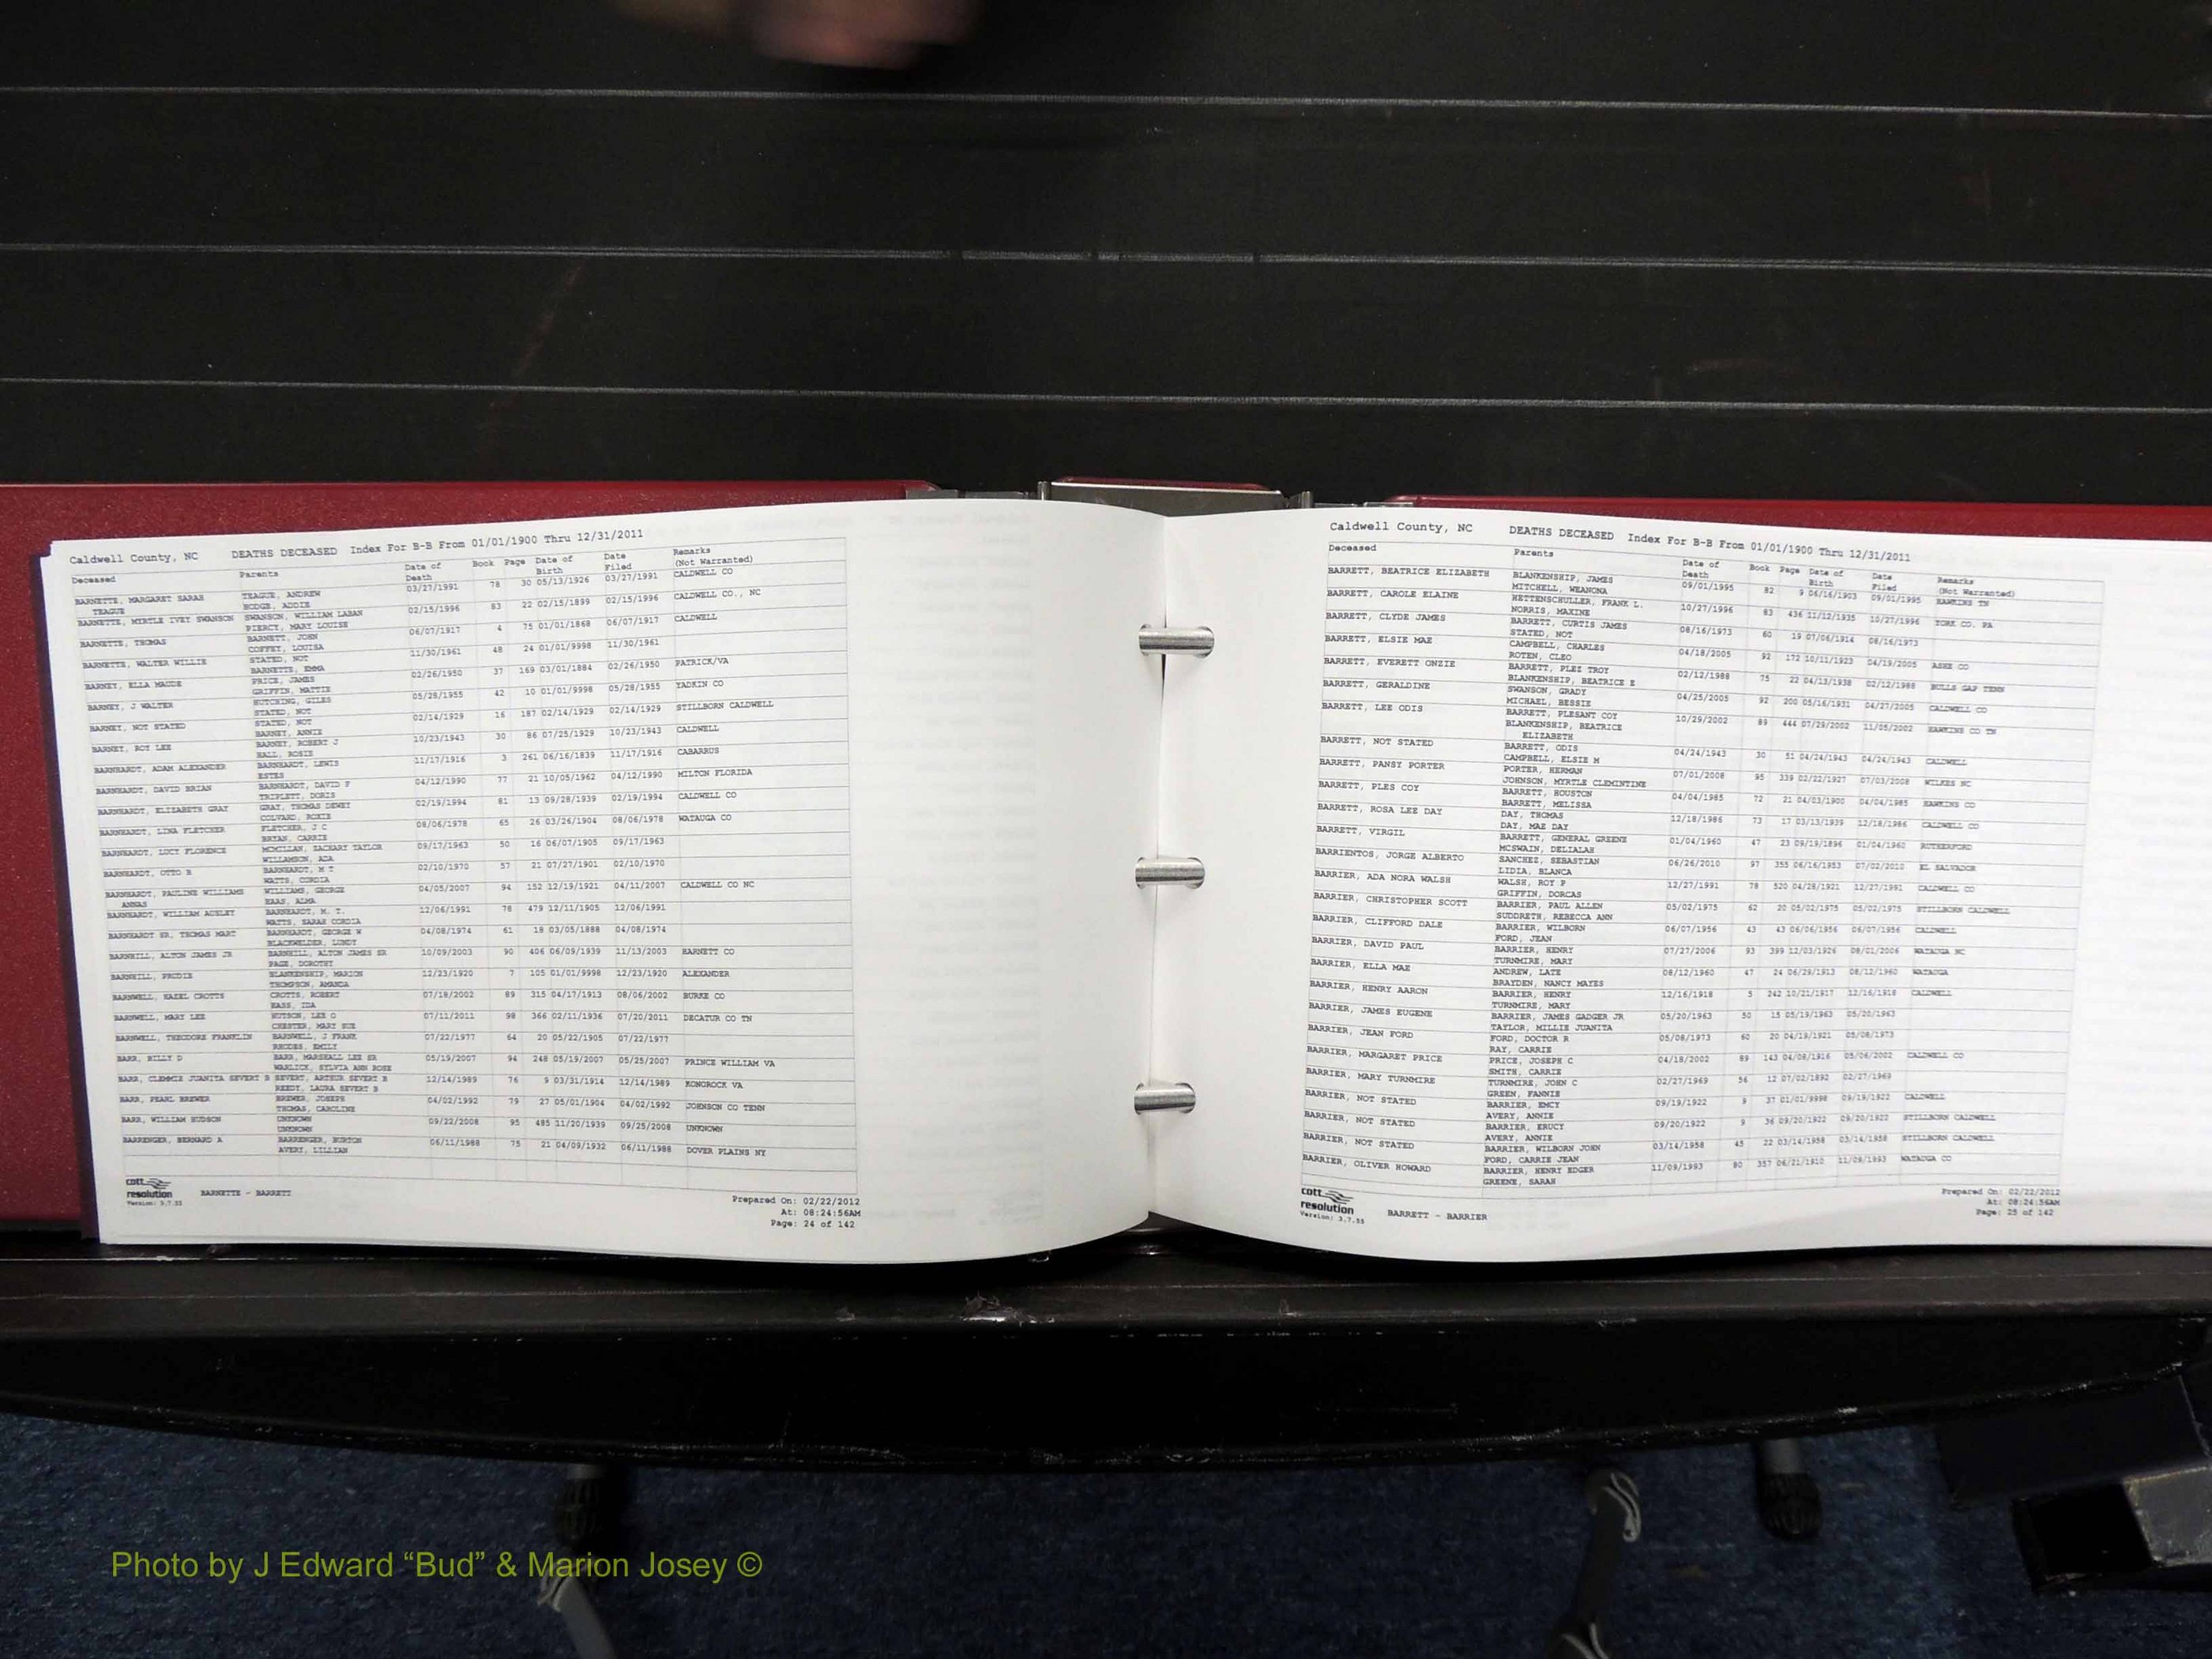 Caldwell County, NC DEATHS DECEASED Index For B-B From 01/01/1900 Thru 12/31/2011
Deceased Parents Date of Death Book Page Date of Birth Date Filed Remarks (Not Warranted)
BARNETTE, MARGARET SARAH TEAGUE, ANDREW 03/27/1991 78 30 05/13/1926 03/27/1991 CALDWELL CO
TEAGUE HODGE, ADDIE
BARNETTE, MYRTLE IVEY SWANSON SWANSON, WILLIAM LABAN 02/15/1996 83 22 02/15/1899 02/15/1996 CALDWELL CO., NC
PIERCY, MARY LOUISE
BARNETTE, THOMAS BARNETT, JOHN 06/07/1917 4 75 01/01/1868 06/07/1917 CALDWELL
COFFEY, LOUISA
BARNETTE, WALTER WILLIE STATED, NOT 11/30/1961 48 24 01/01/9998 11/30/1961
BARNETTE, EMMA
BARNEY, ELLA MAUDE PRICE, JAMES 02/26/1950 37 169 03/01/1884 02/26/1950 PATRICK/VA
GRIFFIN, MATTIE
BARNEY, J WALTER HUTCHING, GILES 05/28/1955 42 10 01/01/9998 05/28/1955 YADKIN CO
STATED, NOT
BARNEY, NOT STATED STATED, NOT 02/14/1929 16 187 02/14/1929 02/14/1929 STILLBORN CALDWELL
BARNEY, ANNIE
BARNEY, ROY LEE BARNEY, ROBERT J 10/23/1943 30 86 07/25/1929 10/23/1943 CALDWELL
HALL, ROSIE
BARNHARDT, ADAM ALEXANDER BARNHARDT, LEWIS 11/17/1916 3 261 06/16/1839 11/17/1916 CABARRUS
ESTES
BARNHARDT, DAVID BRIAN BARNHARDT, DAVID F 04/12/1990 77 21 10/05/1962 04/12/1990 MILTON FLORIDA
TRIPLETT, DORIS
BARNHARDT, ELIZABETH GRAY GRAY, THOMAS DEWEY 02/19/1994 81 13 09/28/1939 02/19/1994 CALDWELL CO
COLVARD, ROXIE
BARNHARDT, LINA FLETCHER FLETCHER, J C 08/06/1978 65 26 03/26/1904 08/06/1978 WATAUGA CO
BRYAN, CARRIE
BARNHARDT, LUCY FLORENCE MCMILLAN, ZACHARY TAYLOR 09/17/1963 50 16 06/07/1905 09/17/1963
WILLIAMSON, ADA
BARNHARDT, OTTO B BARNHARDT, M T 02/10/1970 57 21 07/27/1901 02/10/1970
WATTS, CORDIA
BARNHARDT, PAULINE WILLIAMS WILLIAMS, GEORGE 04/05/2007 94 152 12/19/1921 04/11/2007 CALDWELL CO NC
ANNAS HAAS, ALMA
BARNHARDT, WILLIAM AUSLEY BARNHARDT, M. T. 12/06/1991 78 479 12/11/1905 12/06/1991
WATTS, SARAH CORDIA
BARNHARDT SR, THOMAS HART BARNHARDT, GEORGE W 04/08/1974 61 18 03/05/1888 04/08/1974
BLACKWELDER, LUNDY
BARNHILL, ALTON JAMES JR BARNHILL, ALTON JAMES SR 10/09/2003 90 406 06/09/1939 11/13/2003 BARNETT CO
PAGE, DOROTHY
BARNHILL, PRUDIE BLANKENSHIP, MARION 12/23/1920 7 105 01/01/9998 12/23/1920 ALEXANDER
THOMPSON, AMANDA
BARNWELL, HAZEL CROTTS CROTTS, ROBERT 07/18/2002 89 315 04/17/1913 08/06/2002 BURKE CO
HASS, IDA
BARNWELL, MARY LEE HUTSON, LEE O 07/11/2011 98 366 02/11/1936 07/20/2011 DECATUR CO TN
CHESTER, MARY SUE
BARNWELL, THEODORE FRANKLIN BARNWELL, J FRANK 07/22/1977 64 20 05/22/1905 07/22/1977
RHODES, EMILY
BARR, BILLY D BARR, MARSHALL LEE SR 05/19/2007 94 248 05/19/2007 05/25/2007 PRINCE WILLIAM VA
WARLICK, SYLVIA ANN ROSE
BARR, CLEMMIE JUANITA SEVERT B SEVERT, ARTHUR SEVERT B 12/14/1989 76 9 03/31/1914 12/14/1989 KONOROCK VA
REEDY, LAURA SEVERT B
BARR, PEARL BREWER BREWER, JOSEPH 04/02/1992 79 27 05/01/1904 04/02/1992 JOHNSON CO TENN
THOMAS, CAROLINE
BARR, WILLIAM HUDSON UNKNOWN 09/22/2008 95 485 11/20/1939 09/25/2008 UNKNOWN
UNKNOWN
BARRENGER, BERNARD A BARRENGER, BURTON 06/11/1988 75 21 04/09/1932 06/11/1988 DOVER PLAINS NY
AVERY, LILLIAN
cott
resolution BARNETTE - BARRETT
Version: 3.7.55
Prepared On: 02/22/2012
At: 08:24:56AM
Page: 24 of 142
Caldwell County, NC DEATHS DECEASED Index For B-B From 01/01/1900 Thru 12/31/2011
Deceased Parents Date of Death Book Page Date of Birth Date Filed Remarks (Not Warranted)
BARRETT, BEATRICE ELIZABETH BLANKENSHIP, JAMES 09/01/1995 82 9 06/16/1903 09/01/1995 HAWKINS TN
MITCHELL, WEANONA
BARRETT, CAROLE ELAINE HETTENSCHULLER, FRANK L. 10/27/1996 83 436 11/12/1935 10/27/1996 YORK CO. PA
NORRIS, MAXINE
BARRETT, CLYDE JAMES BARRETT, CURTIS JAMES 08/16/1973 60 19 07/06/1914 08/16/1973
STATED, NOT
BARRETT, ELSIE MAE CAMPBELL, CHARLES 04/18/2005 92 172 10/11/1923 04/19/2005 ASHE CO
ROTEN, CLEO
BARRETT, EVERETT ONZIE BARRETT, PLEZ TROY 02/12/1988 75 22 04/13/1938 02/12/1988 BULLS GAP TENN
BLANKENSHIP, BEATRICE E
BARRETT, GERALDINE SWANSON, GRADY 04/25/2005 92 200 05/16/1931 04/27/2005 CALDWELL CO
MICHAEL, BESSIE
BARRETT, LEE ODIS BARRETT, PLESANT COY 10/29/2002 89 444 07/29/2002 11/05/2002 HAWKINS CO TN
BLANKENSHIP, BEATRICE
ELIZABETH
BARRETT, NOT STATED BARRETT, ODIS 04/24/1943 30 51 04/24/1943 04/24/1943 CALDWELL
CAMPBELL, ELSIE M
BARRETT, PANSY PORTER PORTER, HERMAN 07/01/2008 95 339 02/22/1927 07/03/2008 WILKES NC
JOHNSON, MYRTLE CLEMINTINE
BARRETT, PLES COY BARRETT, HOUSTON 04/04/1985 72 21 04/03/1900 04/04/1985 HAWKINS CO
BARRETT, MELISSA
BARRETT, ROSA LEE DAY DAY, THOMAS 12/18/1986 73 17 03/13/1939 12/18/1986 CALDWELL CO
DAY, MAE DAY
BARRETT, VIRGIL BARRETT, GENERAL GREENE 01/04/1960 47 23 09/19/1896 01/04/1960 RUTHERFORD
MCSWAIN, DELIALAH
BARRIENTOS, JORGE ALBERTO SANCHEZ, SEBASTIAN 06/26/2010 97 355 06/16/1953 07/02/2010 EL SALVADOR
LIDIA, BLANCA
BARRIER, ADA NORA WALSH WALSH, ROY P 12/27/1991 78 520 04/28/1921 12/27/1991 CALDWELL CO
GRIFFIN, DORCAS
BARRIER, CHRISTOPHER SCOTT BARRIER, PAUL ALLEN 05/02/1975 62 20 05/02/1975 05/02/1975 STILLBORN CALDWELL
SUDDRETH, REBECCA ANN
BARRIER, CLIFFORD DALE BARRIER, WILBORN 06/07/1956 43 43 06/06/1956 06/07/1956 CALDWELL
FORD, JEAN
BARRIER, DAVID PAUL BARRIER, HENRY 07/27/2006 93 399 12/03/1926 08/01/2006 WATAUGA NC
TURNMIRE, MARY
BARRIER, ELLA MAE ANDREW, LATE 08/12/1960 47 24 06/29/1913 08/12/1960 WATAUGA
BRAYDEN, NANCY MAYES
BARRIER, HENRY AARON BARRIER, HENRY 12/16/1918 5 242 10/21/1917 12/16/1918 CALDWELL
TURNMIRE, MARY
BARRIER, JAMES EUGENE BARRIER, JAMES GADGER JR 05/20/1963 50 15 05/19/1963 05/20/1963
TAYLOR, MILLIE JUANITA
BARRIER, JEAN FORD FORD, DOCTOR R 05/08/1973 60 20 04/19/1921 05/08/1973
RAY, CARRIE
BARRIER, MARGARET PRICE PRICE, JOSEPH C 04/18/2002 89 143 04/08/1916 05/06/2002 CALDWELL CO
SMITH, CARRIE
BARRIER, MARY TURNMIRE TURNMIRE, JOHN C 02/27/1969 56 12 07/02/1892 02/27/1969
GREEN, FANNIE
BARRIER, NOT STATED BARRIER, EMCY 09/19/1922 9 37 01/01/9998 09/19/1922 CALDWELL
AVERY, ANNIE
BARRIER, NOT STATED BARRIER, ERUCY 09/20/1922 9 36 09/20/1922 09/20/1922 STILLBORN CALDWELL
AVERY, ANNIE
BARRIER, NOT STATED BARRIER, WILBORN JOHN 03/14/1958 45 22 03/14/1958 03/14/1958 STILLBORN CALDWELL
FORD, CARRIE JEAN
BARRIER, OLIVER HOWARD BARRIER, HENRY EDGER 11/09/1993 80 357 06/21/1910 11/09/1993 WATAUGA CO
GREENE, SARAH
cott
resolution BARRETT - BARRIER
Version: 3.7.55
Prepared On: 02/22/2012
At: 08:24:56AM
Page: 25 of 142
Photo by J Edward “Bud” & Marion Josey ©